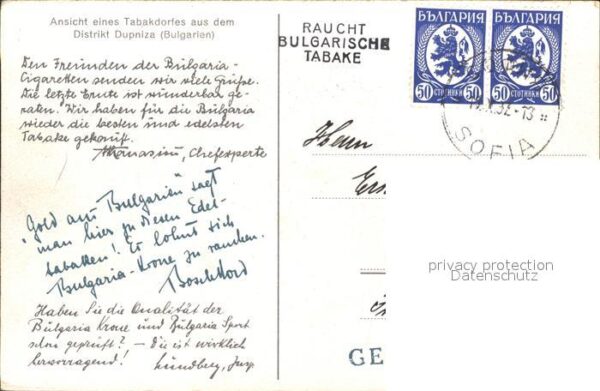 Ansicht eines Tabakdorfes aus dem
Distrikt Dupniza (Bulgarien)
Den Freunden der Bulgaria-
Cigaretten senden wir viele Grüsse.
Die letzte Ernte ist wunderbar ge-
raten. Wir haben für die Bulgaria
wieder die besten und edelsten
Tabake gekauft.
Athanasiou, Chefexperte
"Gold aus Bulgarien" sagt
man hier zu diesen Edel-
tabaken! Es lohnt sich
Bulgaria-Krone zu rauchen.
Haben Sie die Qualität der
Bulgaria Krone und Bulgaria Sport
schon geprüft? - die ist wirklich
hervorragend! Lundberg, Insp.
RAUCHT
BULGARISCHE
TABAKE
БЪЛГАРИЯ БЪЛГАРИЯ
50 СТОТИНКИ 50 50 СТОТИНКИ 50
SOFIA
Herrn
privacy protection
Datenschutz
GE